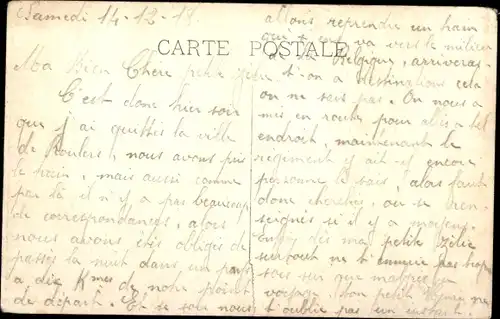 Samedi 14-12-18.
CARTE POSTALE
Ma Bien Chère petite Zélie
C'est donc hier soir
que j'ai quittés la ville
de Roulers, nous avons pris
le train, mais aussi comme
par là il n'y a pas beaucoup
de correspondances, alors
nous avons étés obligés de
passés la nuit dans un pays
a dix Kmes de notre point
de départ. Et ce soir nous
allons reprendre un train
qui va vers le milieu
de la Belgique, arriveras
t'on a destination cela
on ne sais pas. On nous a
mis en route pour allés a tel
endroit, maintenant le
régiment y ait-il encore
personne le sais, alors faut
donc cherchés, ou se ren-
seignés si il y a moyens.
dès ma petite Zélie
surtout ne t'ennuie pas trop
sur que malgrés
voyage, ton petit ne
t'oublie pas un instant.